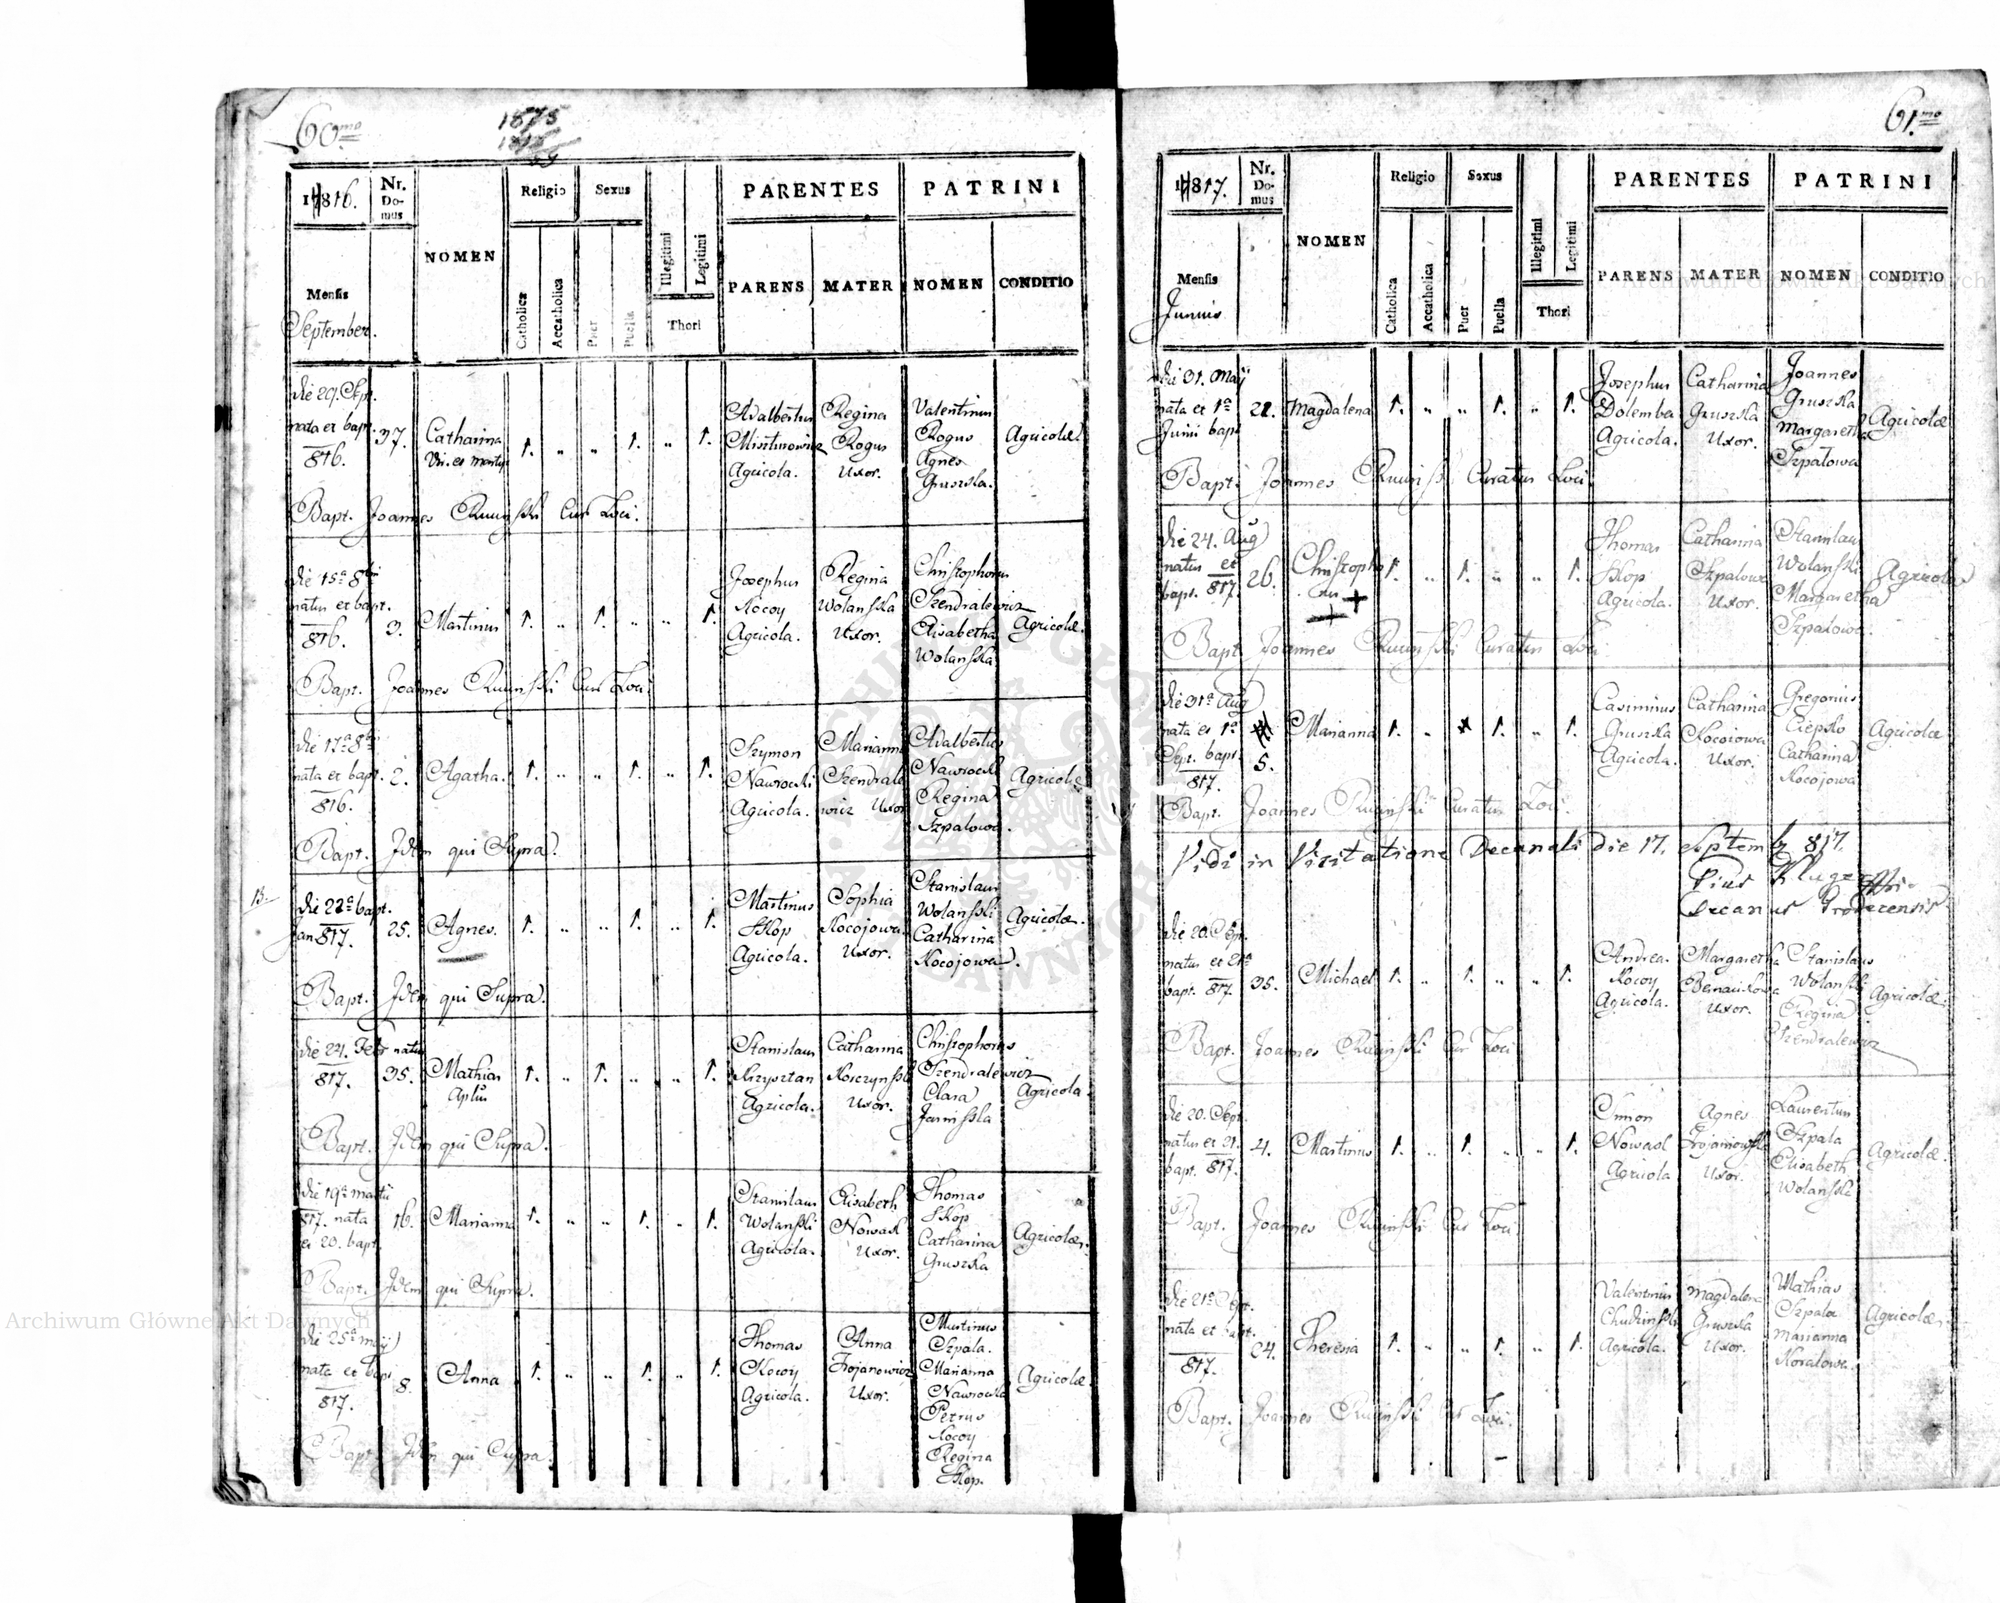 60mo
1875
1816.
Nr. Domus
NOMEN
Religio
Sexus
PARENTES
PATRINI
Mensis
September.
Catholica
Accatholica
Puer
Puella
Illegitimi
Legitimi
Thori
PARENS
MATER
NOMEN
CONDITIO
die 29. Sept. Adalbertus Regina Valentinus
nata et bapt. 37. Catharina 1. „ „ 1. „ 1. Rogus Rogus Agricolae
816. Vir. et Mart. Agricola. Uxor. Agnes
Gruszka.
Bapt. Joannes Ruciński Cur Loci.
die 15a 8bris Josephus Regina Christophorus
natus et bapt. 3. Martinus 1. „ 1. „ „ 1. Kocoy Wolańska Szendralewicz Agricolae.
816. Agricola. Uxor. Elisabetha
Wolańska
Bapt. Joannes Ruciński Cur Loci.
die 17a 8bris Szymon Marianna Adalbertus
nata et bapt. 2. Agatha. 1. „ „ 1. „ 1. Nawrocki Szendrale Nawrocki Agricolae
816. Agricola. wicz Uxor Regina
Szpalowa.
Bapt. Idem qui Supra.
13.
die 22a bapt. Martinus Sophia Stanislaus
Jan 817. 25. Agnes. 1. „ „ 1. „ 1. Skop Kocojowa. Wolański Agricolae.
Agricola. Uxor. Catharina
Kocojowa.
Bapt. Idem qui Supra.
die 24. Febr natus Stanislaus Catharina Christophorus
817. 35. Mathias 1. „ 1. „ „ 1. Krzysztan Szendralewicz Agricola.
Aplus Agricola. Uxor. Clara
Janińska
Bapt. Idem qui Supra.
die 19a martii Stanislaus Elisabeth Thomas
817. nata 16. Marianna 1. „ „ 1. „ 1. Wolański Nowak Skop Agricolae.
et 20. bapt. Agricola. Uxor. Catharina
Gruszka
Bapt. Idem qui Supra.
die 25a maij Thomas Anna Martinus
Szpala.
nata et bapt 8. Anna 1. „ „ 1. „ 1. Kocoy Trojanowicz Marianna Agricolae.
817. Agricola. Uxor. Nawrocka
Petrus
Kocoy
Regina
Skop.
Bapt. Idem qui Supra.
61.mo
1817.
Nr. Domus
NOMEN
Religio
Sexus
PARENTES
PATRINI
Mensis
Junius
Catholica
Accatholica
Puer
Puella
Illegitimi
Legitimi
Thori
PARENS
MATER
NOMEN
CONDITIO
die 31. Maij Josephus Catharina Joannes
nata et 1a 22. Magdalena 1. „ „ 1. „ 1. Dolemba Gruszka Gruszka Agricolae
Junii bapt Agricola. Uxor. Margaretha
Szpalowa
Bapt. Joannes Ruciński Curatus Loci
die 24. Aug Thomas Catharina Stanislaus
natus et 26. Christopho 1. „ 1. „ „ 1. Skop Szpalowa Wolański Agricolae
bapt. 817. rus + Agricola. Uxor. Margaretha
Szpalowa.
Bapt Joannes Ruciński Curatus Loci
die 31a Aug Casimirus Catharina Gregorius
nata et 1a Marianna 1. „ 1. „ 1. Gruszka Kocoiowa Ciepło Agricolae
Sept. bapt. 5. Agricola. Uxor. Catharina
817. Kocojowa
Bapt. Joannes Ruciński Curatus Loci.
Vidi in Visitatione Decanali die 17. Septemb 817.
Pius Kluger
Decanus
die 20. Sept. Andrea. Margaretha Stanislaus
natus et 21a 35. Michael 1. „ 1. „ „ 1. Kocoy Wolański Agricolae.
bapt. 817. Agricola. Uxor. Regina
Szendralewicz
Bapt. Joannes Ruciński Cur Loci
die 20. Sept. Simon Agnes Laurentius
natus et 21. 4. Martinus 1. „ 1. „ „ 1. Nowak Szpala Agricolae.
bapt. 817. Agricola Uxor. Elisabeth
Wolańska
Bapt. Joannes Ruciński Cur Loci.
die 21a Sept. Valentinus Magdalena Mathias
nata et bapt. 24. Theresia 1. „ „ 1. „ 1. Chudziński Gruszka Szpala Agricolae.
817. Agricola. Uxor. Marianna
Bapt. Joannes Ruciński Cur Loci.
Archiwum Główne Akt Dawnych
Archiwum Główne Akt Dawnych